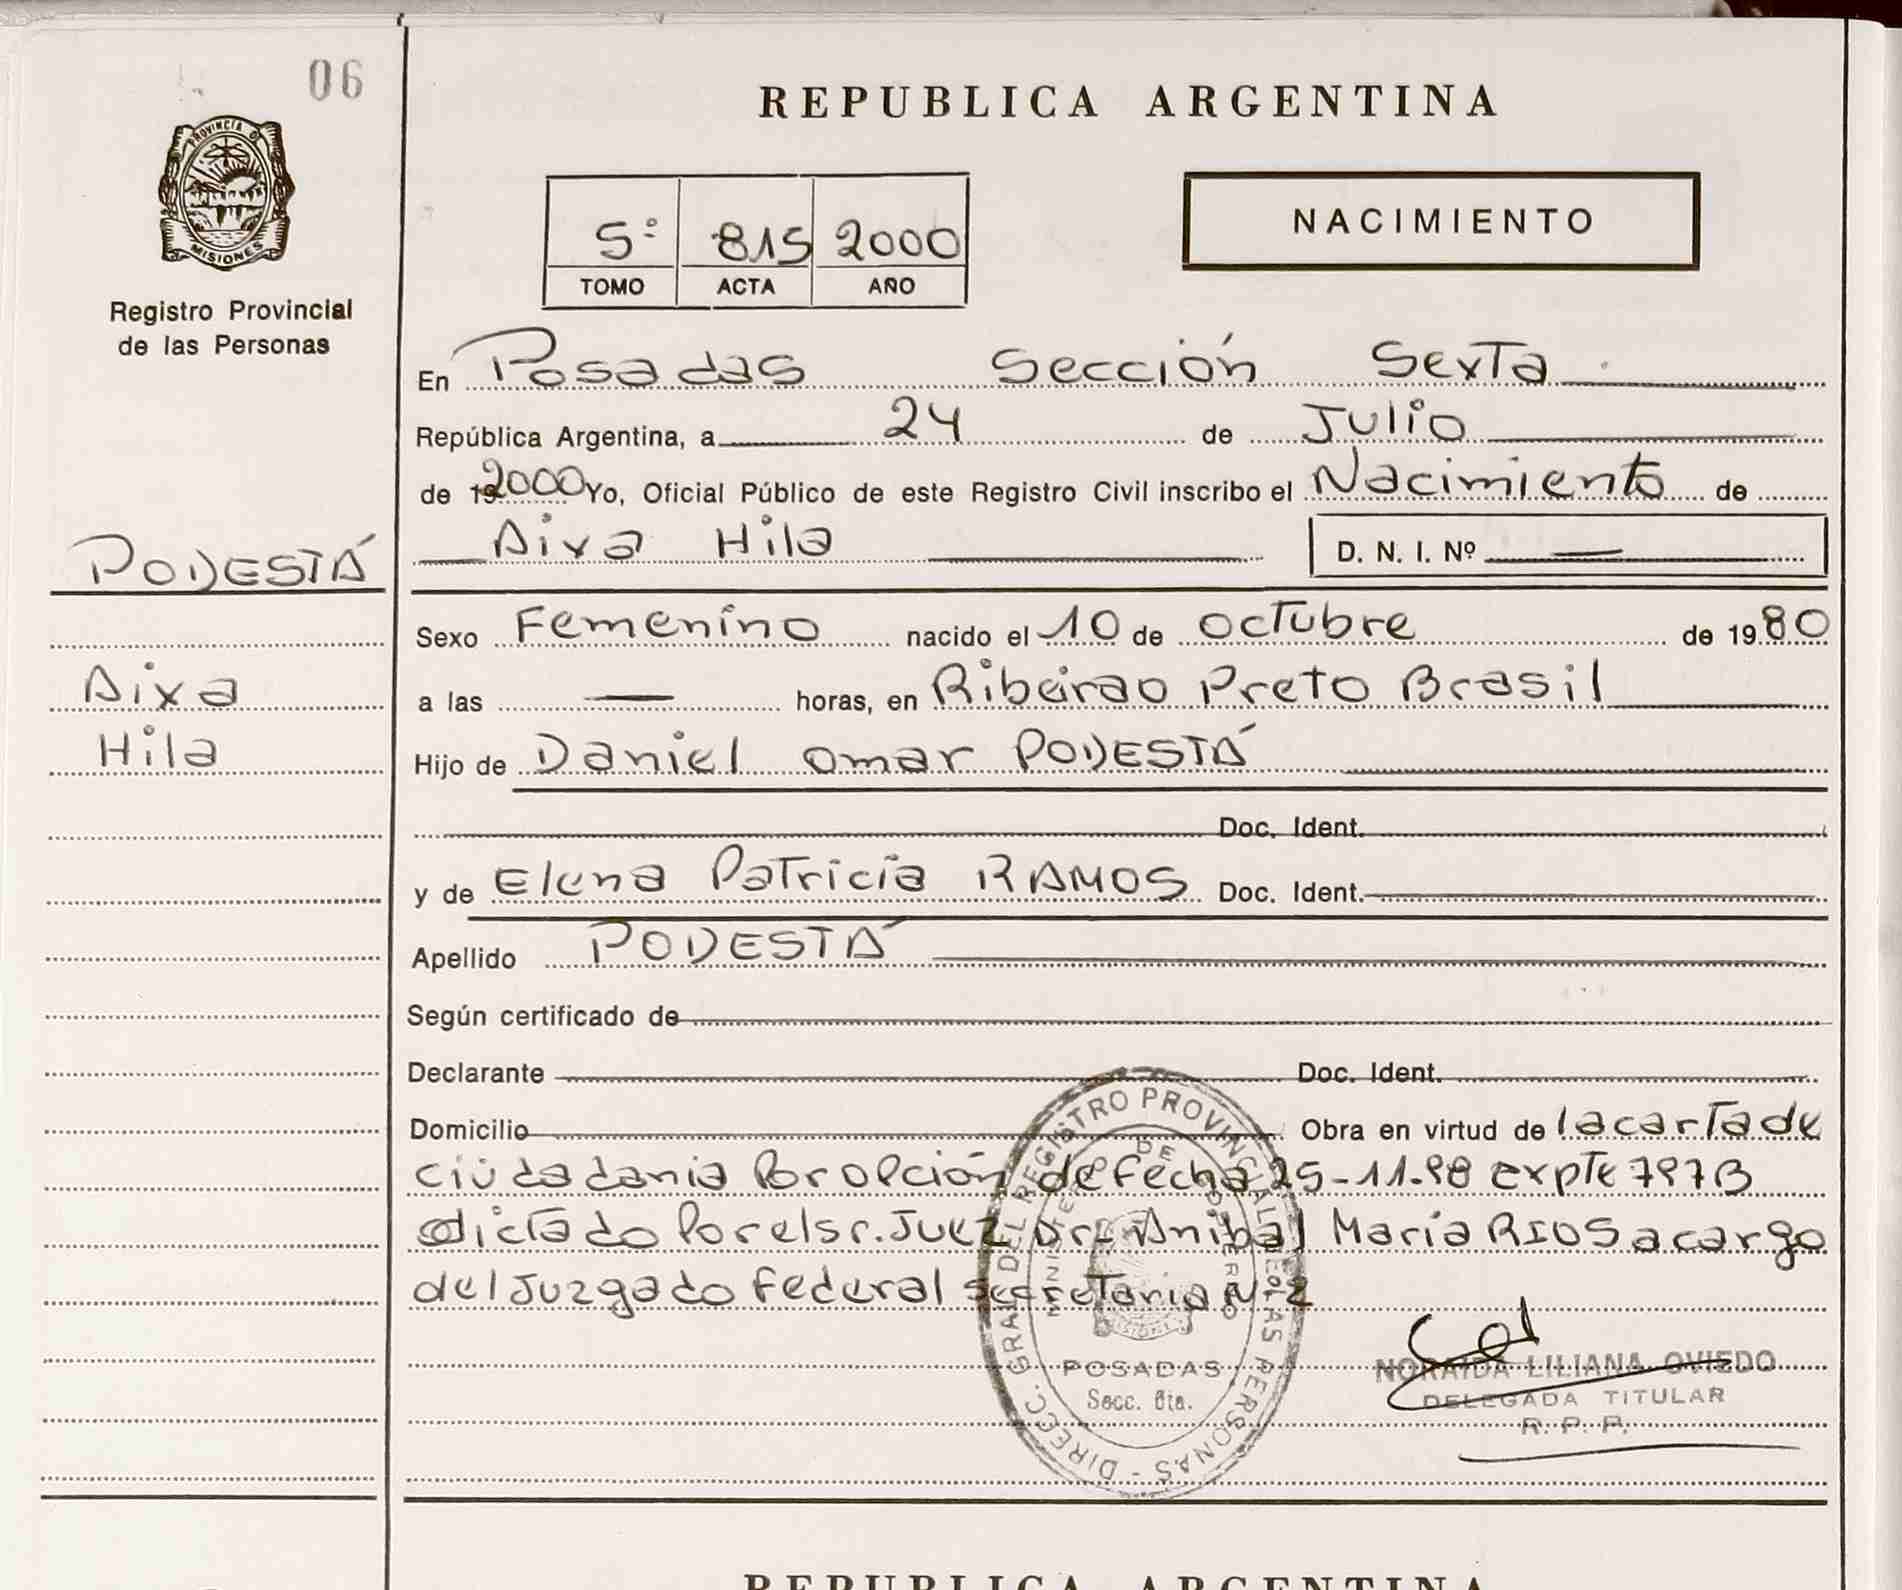 06
REPUBLICA ARGENTINA
PROVINCIA DE
MISIONES
Registro Provincial
de las Personas
5º 815 2000
TOMO ACTA AÑO
NACIMIENTO
En Posadas Sección Sexta
República Argentina, a 24 de Julio
de 19 2000 Yo, Oficial Público de este Registro Civil inscribo el Nacimiento de
Aixa Hila
D. N. I. Nº
PODESTÁ
Aixa
Hila
Sexo Femenino nacido el 10 de octubre de 1980
a las horas, en Ribeirao Preto Brasil
Hijo de Daniel Omar PODESTÁ
Doc. Ident.
y de Elena Patricia RAMOS Doc. Ident.
Apellido PODESTÁ
Según certificado de
Declarante Doc. Ident.
Domicilio Obra en virtud de la carta de
ciudadania Por Opción de fecha 25-11-98 expte 797B
dictado Por el sr. Juez Dr. Anibal Maria RIOS a cargo
del Juzgado Federal secretaria Nº 2
DIRECC. GRAL DEL REGISTRO PROVINCIAL DE LAS PERSONAS
MINISTERIO DE GOBIERNO
MISIONES
POSADAS
Secc. 6ta.
NORAIDA LILIANA OVIEDO
DELEGADA TITULAR
R. P. P.
REPUBLICA ARGENTINA